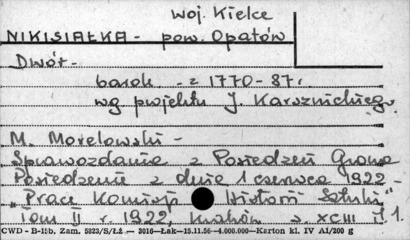 woj. Kielce
NIKISIAŁKA - pow. Opatów
Dwór -
barok - z 1770-87 r.
wg projektu J. Karsznickiego
M. Morelowski -
Sprawozdania z Posiedzeń Grona
Posiedzenie z dnia 1 czerwca 1922 -
"Prace Komisji Historii Sztuki"
Tom II r. 1922, Kraków s. XCIII il 1.
CWD - B-15b, Zam. 5823/S/Łż — 3016—Łak—15.11.56—4.000.000—Karton kl. IV A1/200 g